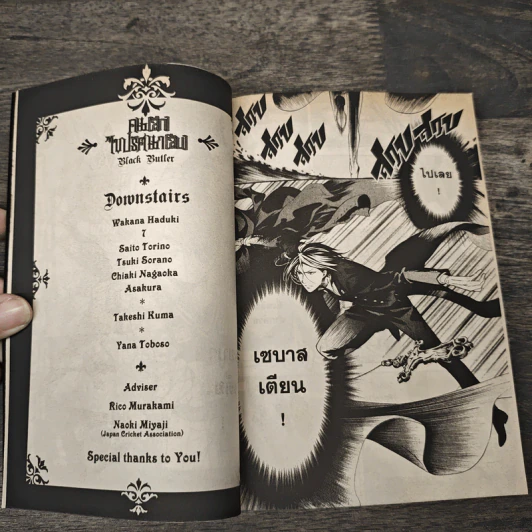 คนลึกไขปริศนาลับ
Black Butler
Downstairs
Wakana Haduki
7
Saito Torino
Tsuki Sorano
Chiaki Nagaoka
Asakura
*
Takeshi Kuma
*
Yana Toboso
Adviser
Rico Murakami
Naoki Miyaji
(Japan Cricket Association)
Special thanks to You!
ไปเลย
!
เซบาส
เตียน
!